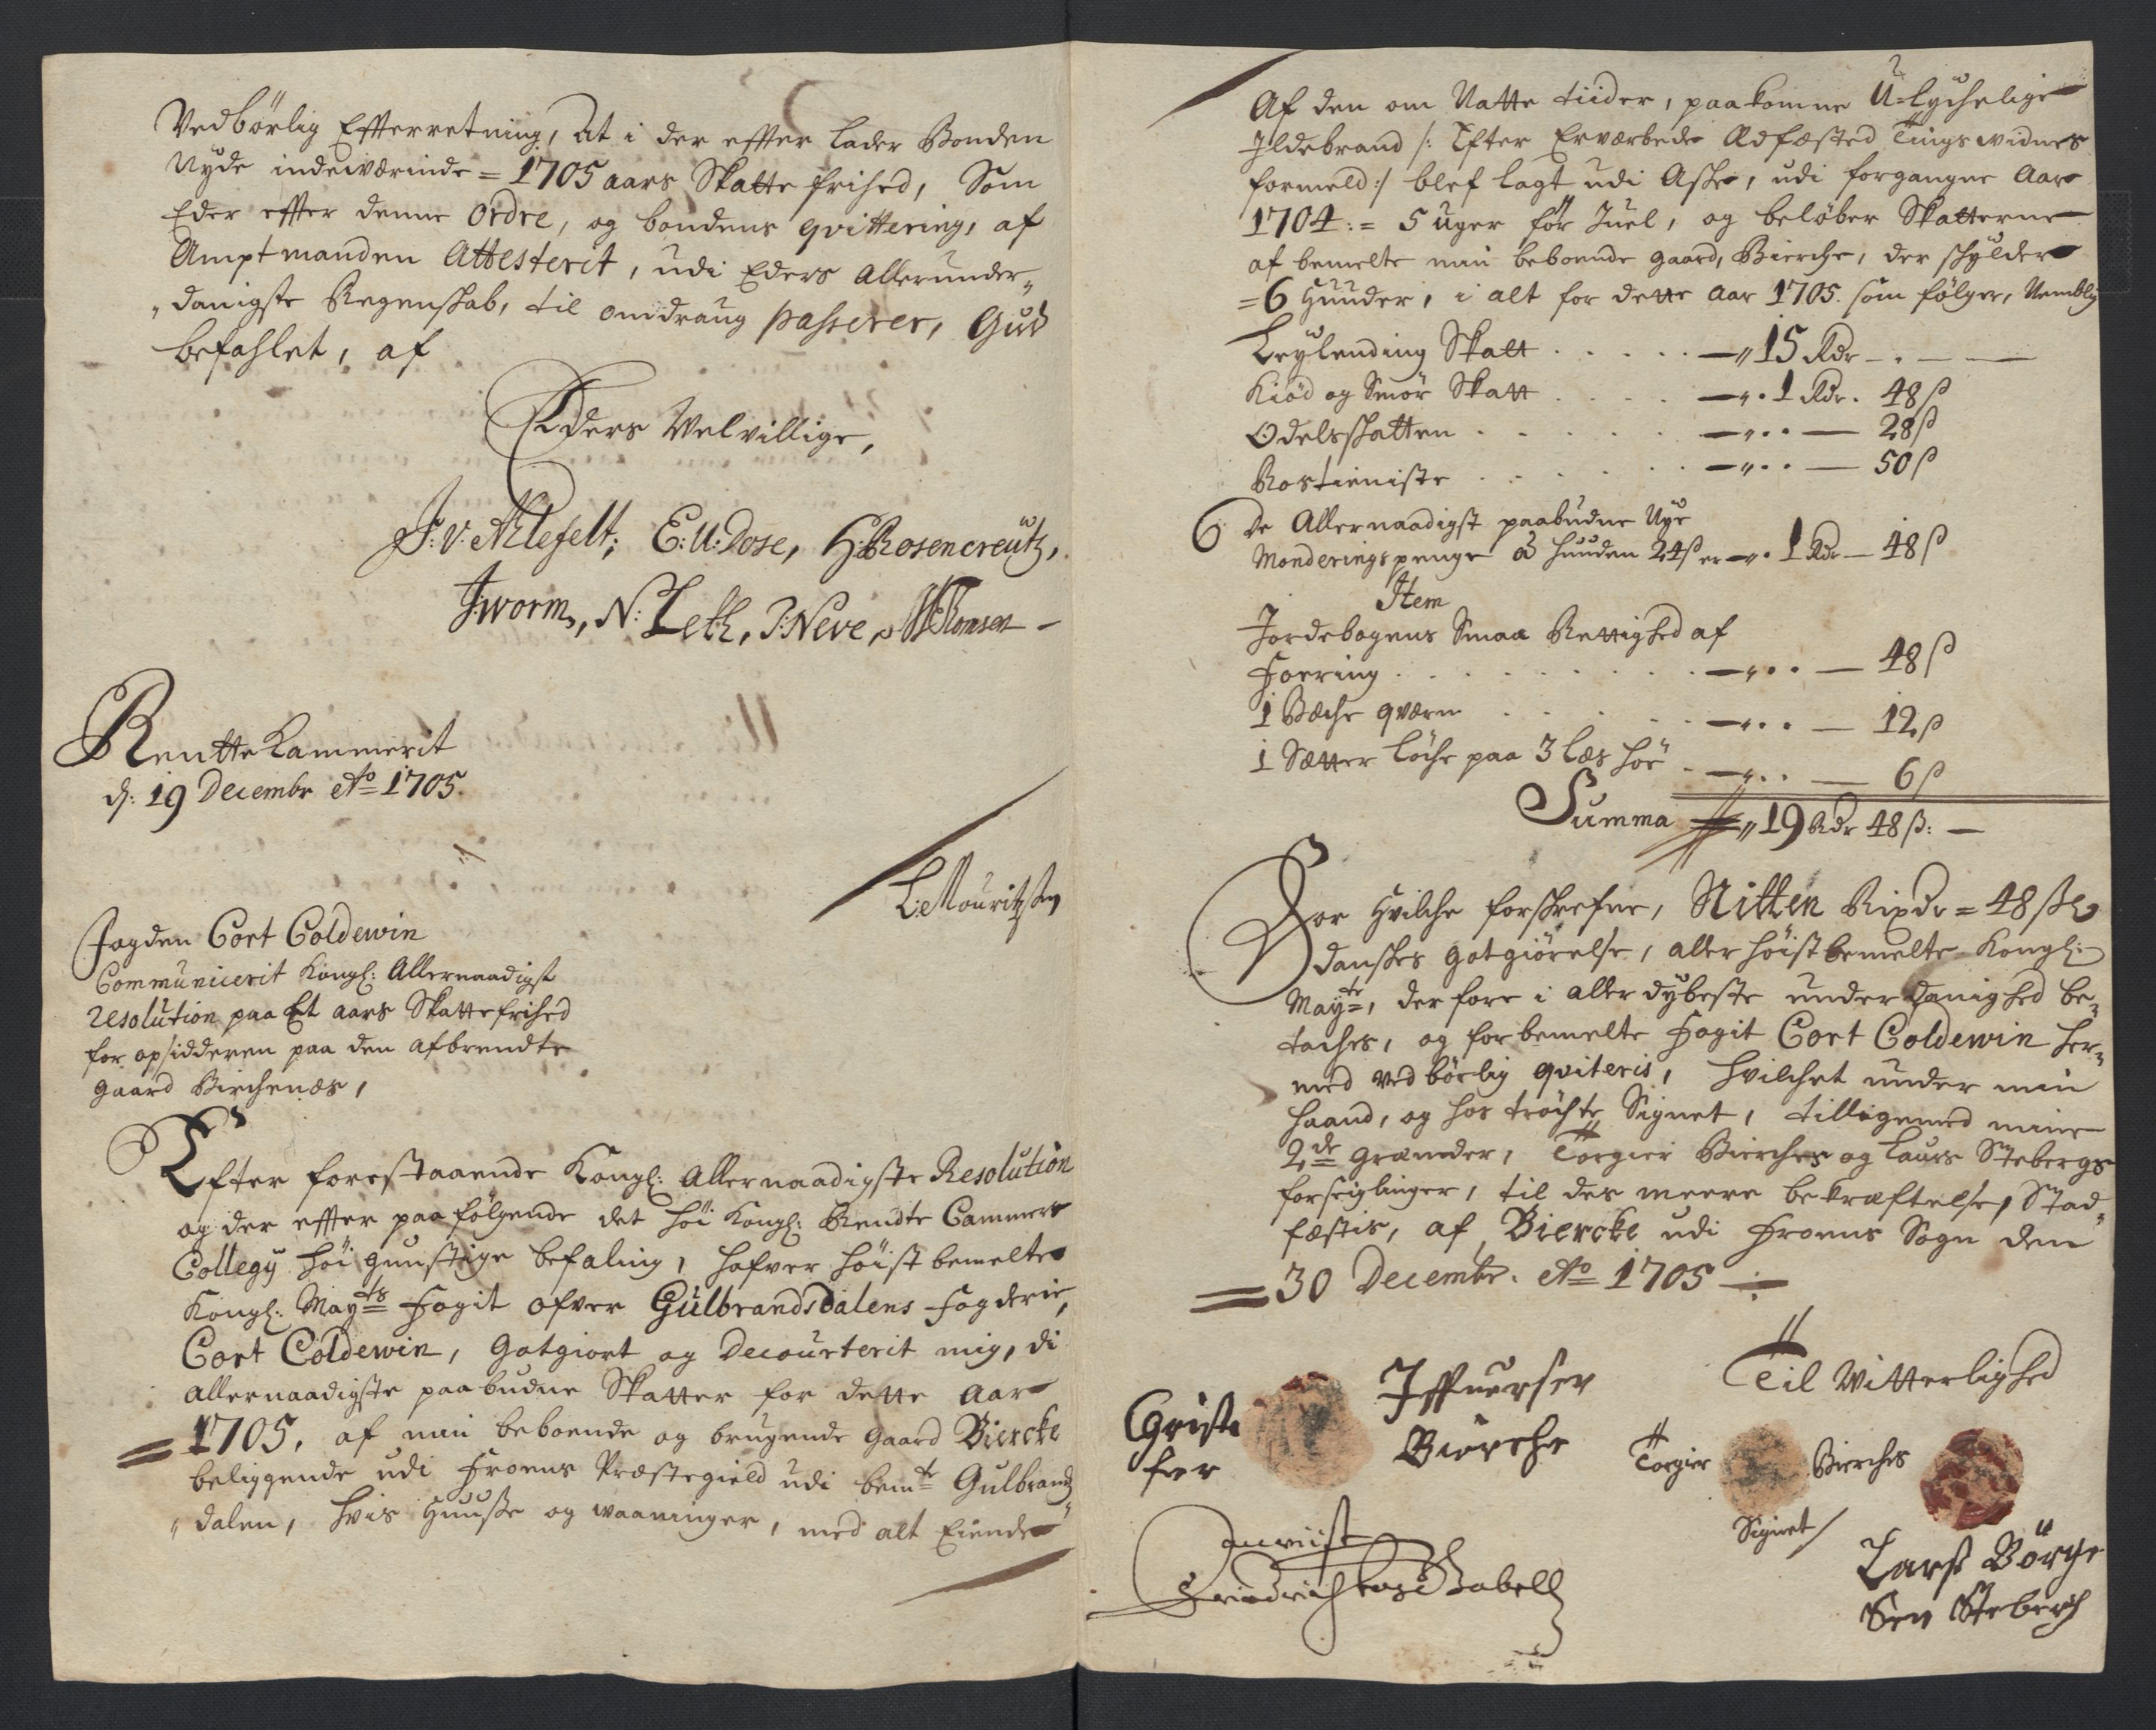 Vedbörlig Efterretning, At i der efter lader Bonden
Nyde indeværinde = 1705 aars Skatte frihed, Som
Eder efter denne Ordre, og bondens qvittering, af
Amptmanden Attesterit, udi Eders Allerunder„
„danigste Regenskab, til omdraug passerer, Gud
befahlet, af
Eders Velvillige,
F: V: Ahlefelt; E: U: Dose, H: Rosencreütz,
J: worm, N: Leth, P: Neve,
Rentte Kammerit
d: 19 Decembr Ao 1705.
L: Mouritzen
Fogden Cort Coldewin
Communicerit Kongl: Allernaadigst
resolution paa Et aars Skattefrihed
for opsidderen paa den afbrendte
gaard Birchenæs,
Efter forestaaende Kongl: Allernaadigste Resolution
og der efter paafölgende det höi Kongl: Rendte Cammer
Collegy höi gunstige befaling, hafver höist bemelte
Kongl: Mayts Fogit ofver Gülbrandsdalens Fogderie,
Cort Coldewin, Gotgiort og Decourterit mig, di
allernaadigste paabudne Skatter for dette Aar
= 1705, af min beboende og brugende gaard Biercke
beliggende udi Froens Præstegield udi bemte Gulbrands
„dalen, hvis Huuße og waaninger, med alt Eiende
Af den om Natte tiider, paakomne U-lychelige
Ildebrand /: Efter Erværbede Edfæsted Tings widnes
formeld :/ blef lagt udi Aske, udi forgangne Aar
1704: = 5 uger för Juel, og belöber Skatterne
af bemelte min beboende gaard, Bierche, der skylder
= 6 Huuder, i alt for dette Aar 1705. som fölger, Nemblig
Leylending Skatt . . . . . —„ 15 Rdr —.— —
Kiöd og Smör Skatt . . . . —„. 1 Rdr. 48 ß
Odelsskatten . . . . . . —„.. — 28 ß
Rostieniste . . . . . . —„.. — 50 ß
6 de Allernaadigst paabudne Nye
Monderings penge à huuden 24 ß er —„. 1 Rdr — 48 ß
Item
Jordebogens Smaa Rettighed af
Foering . . . . . . . . —„.. — 48 ß
1 Bæche qværn . . . . . —„.. — 12 ß
1 Sætter löche paa 3 læs höe . —„.. — 6 ß
Summa „ 19 Rdr 48 ß: —
For Hvilche forskrefne, Nitten Rixdr = 48 ß
danskes gotgiörelse, aller höistbemelte Kongl:
Mayte, der fore i aller dybeste under danighed be„
taches, og forbemelte Fogit Cort Coldewin her„
med ved börlig qviteris, hvilchet under min
haand, og hos tröchte Signet, tilligemed mine
2de grander, Torgier Bierches og Laurs Stebergs
forseiglinger, til des meere bekræftelse, Stad„
fæstis, af Biercke udi Froens Sogn den
= 30 Decembr. Ao 1705 —
Til Vitterlighed
Christo Iffuersen
fer Bierche
Torgier Bierches
Signet /
Larß Börge
Sen Steberg
Anviist